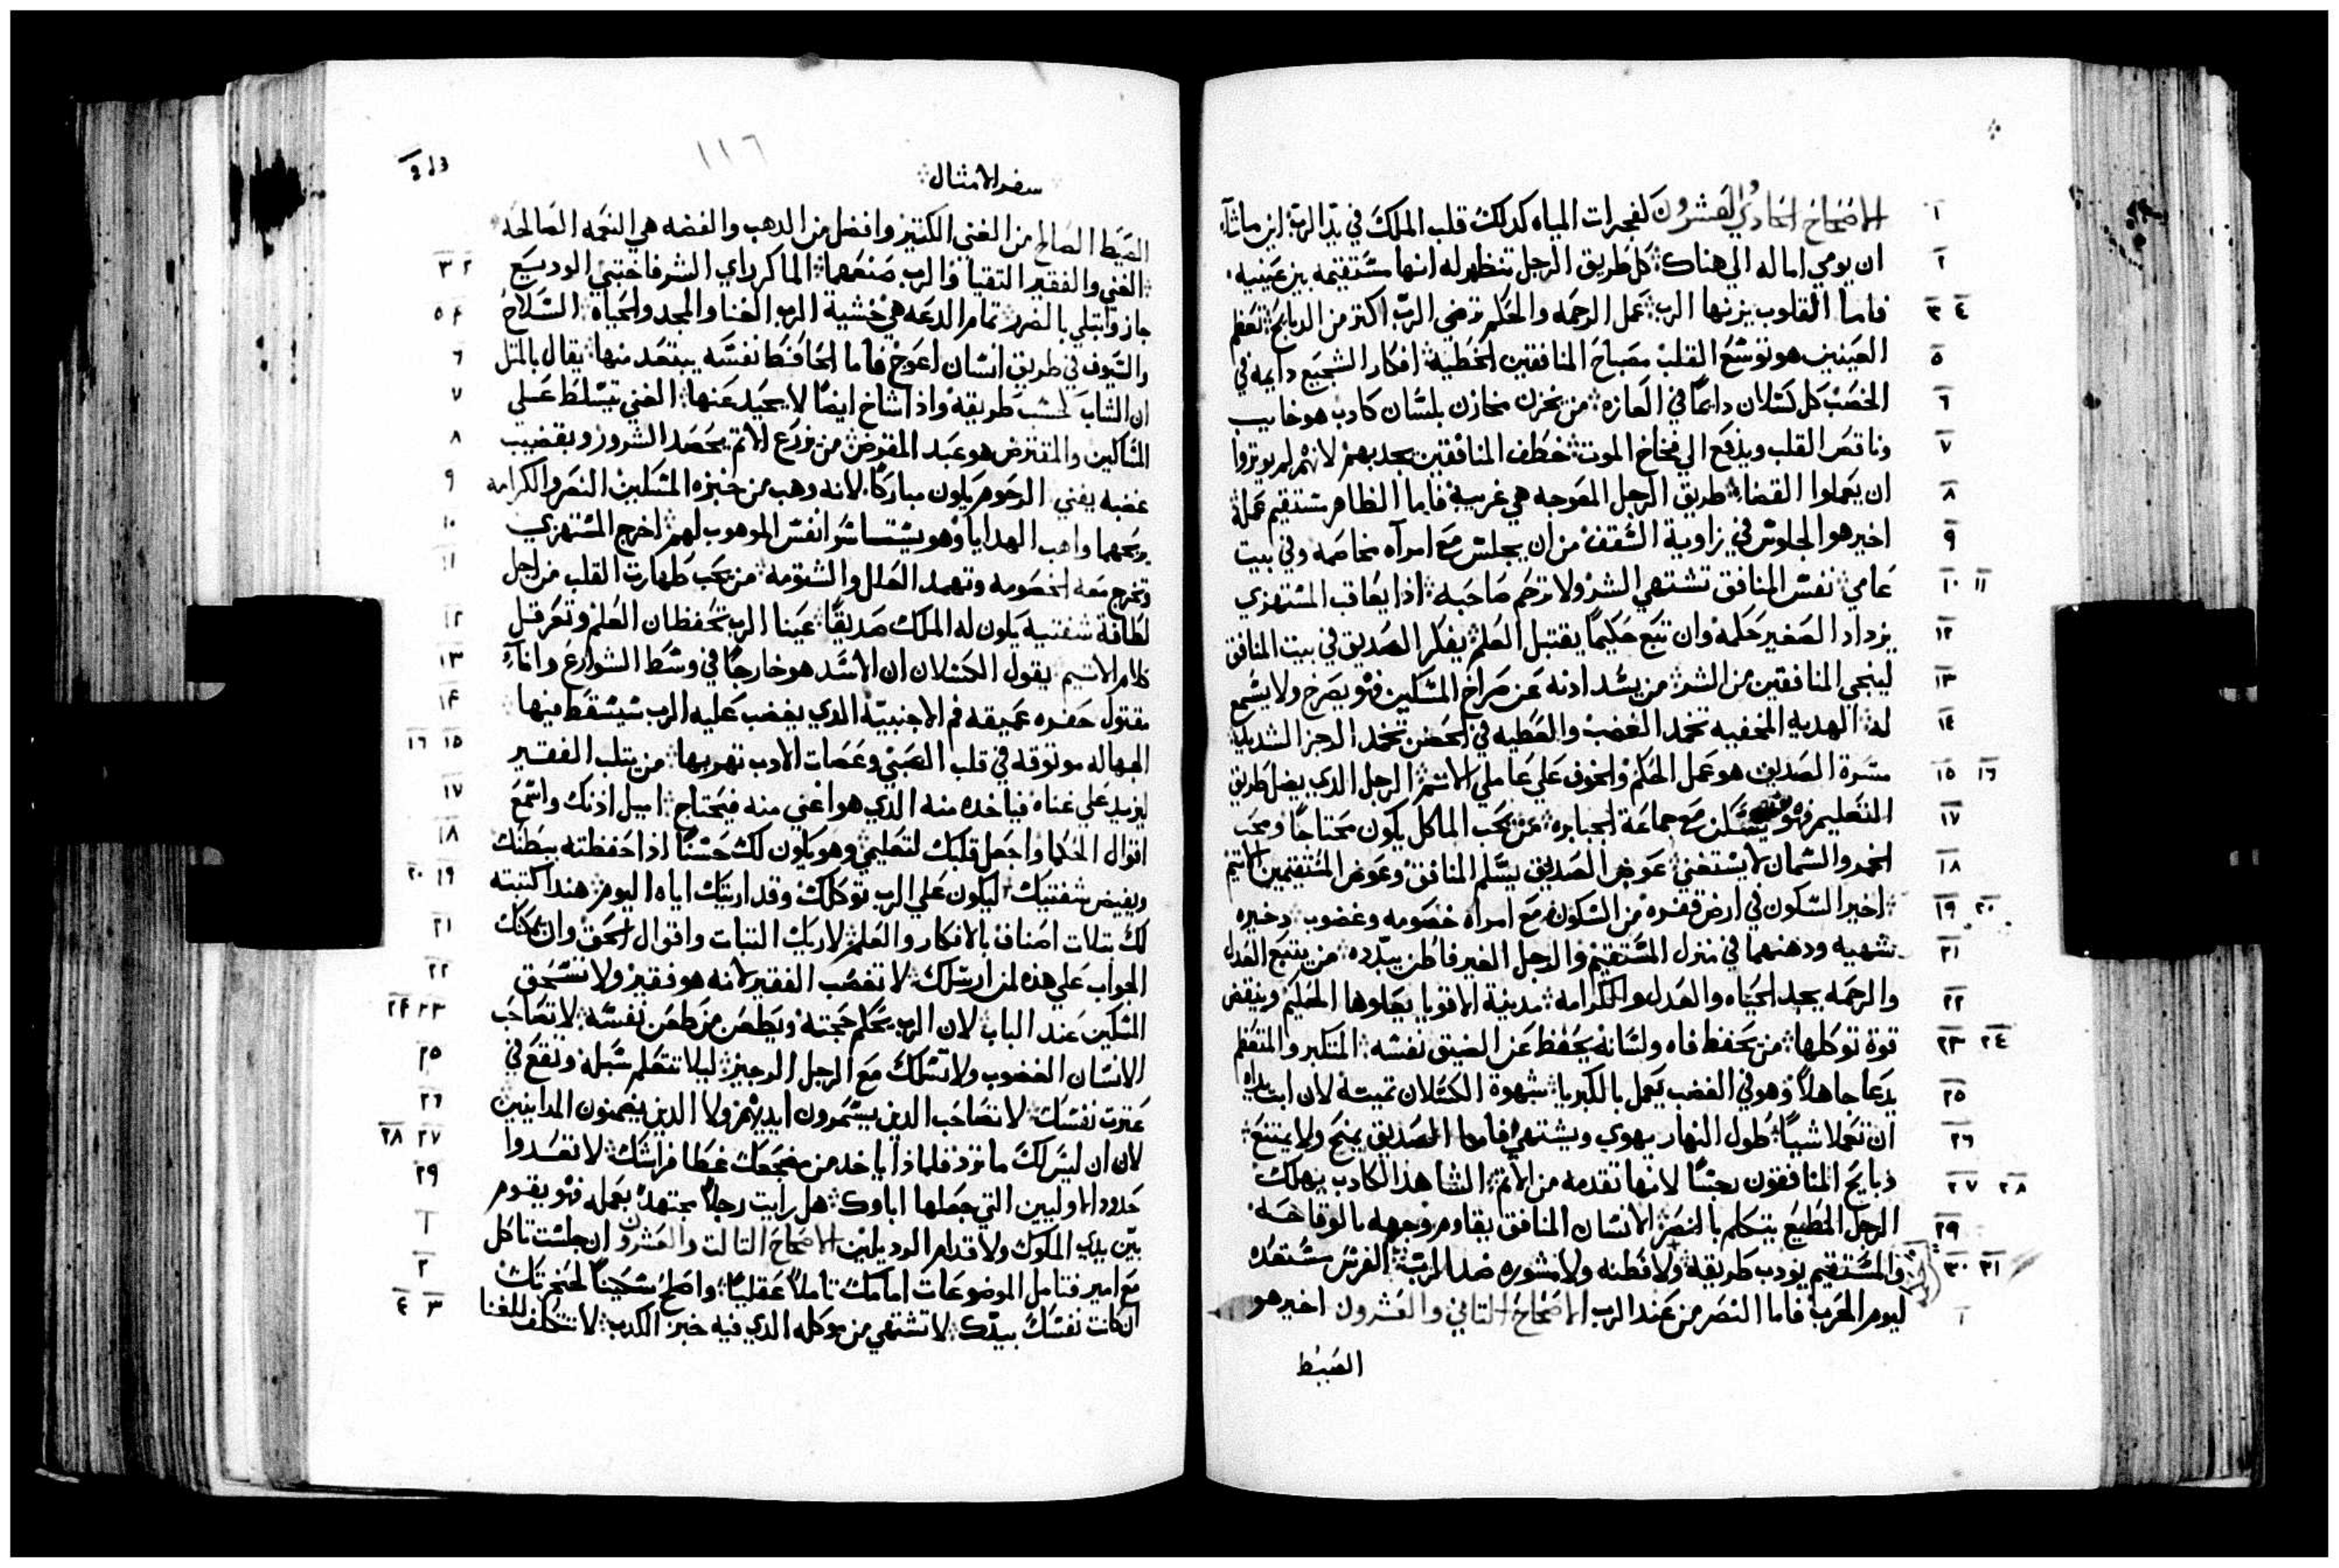 الاصحاح الحادي والعشرون كفجرات المياه كدلك قلب الملك في يد الرب اين ماشآء
ان يومي اماله الي هناك كل طريق الرجل تنظهر له انها مستقيمه بين عينيه
فاما القلوب يزنها الرب عمل الرحمه والحكم ترضي الرب اكثر من الدبايح تعظم
العينين هو توسع القلب مصباح المنافقين الخطية افكار الشجيع دايمه في
الخصب كل كسلان دايمًا في العازه من يخزن مخازن بلسان كادب هو خايب
وناقص القلب ويدفع الي فخاخ الموت خطف المنافقين يجدبهم لانهم لم يوثروا
ان يعملوا القضاء طريق الرجل المعوجه هي غريبة فاما الطاهر مستقيم عمله
اخير هو الجلوس في زاوية السقف من ان يجلس مع امرآه مخاصمه وفي بيت
عامي نفس المنافق تشتهي الشر ولا ترحم صاحبه ادا يعاقب المستهزي
يزداد الصغير حكمه وان تبع حكيمًا يقتبل العلم يفكر الصديق في بيت المنافق
لينجي المنافقين من الشر من يسد ادنه عن صراخ المسكين فهو يصرخ ولا يسمع
له الهديه المخفيه تخمد الغضب والعطيه في الحضن تخمد الرجز الشديد
مسرة الصديق هو عمل الحكم والخوف علي عاملي الاثم الرجل الدي يضل طريق
التعليم فهو يسكن مع جماعة الجبابره من يحب الماكل يكون محتاجًا ومحب
الخمر والسمان لا يستغني عوض الصديق يسلم المنافق وعوض المستقيمين الاثيم
اخير السكون في ارض قفره من السكون مع امراه خصومه وغضوب دخيره
شهيه ودهنهما في منزل المستقيم والرجل الغير فاطن يبدده من يتبع العدل
والرحمه يجد الحياه والعدل والكرامه مدينة الاقويا يعلوها الحكيم وينقض
قوة توكلها من يحفظ فاه ولسانه يحفظ عن الضيق نفسه المتكبر والمتعظم
يدعا جاهلاً وهو في الغضب يعمل بالكبريا شهوة الكسلان تميته لان ابت يداه
ان تعملا شيًا طول النهار يهوي ويشتهي فاما الصديق يمنح ولا يمتنع
دبايح المنافقون نجسًا لانها تقدمه من الاثم الشاهد الكادب يهلك
الرجل المطيع يتكلم بالنصر الانسان المنافق يقاوم وجهه بالوقاحه
والمستقيم يودب طريقه ولا فطنه ولا مشوره ضد الرب الفرس مستعده
ليوم الحرب فاما النصر من عند الرب الاصحاح التاني والعشرون اخير هو
الصيط
١١٦
سفر الامثال
الصيط الصالح من الغني الكتير وافضل من الدهب والفضه هي النعمه الصالحه
الغني والفقير التقيا والرب صنعهما الماكر راي الشر فاختبي الوديع
جاز وابتلي بالضرر تمام الدعه هي خشية الرب الغنا والمجد والحياه السلاح
والسيوف في طريق انسان اعوج فاما الحافظ نفسه يبتعد منها يقال بالمثل
ان الشاب لحسب طريقه وادا شاخ ايضًا لا يحيد عنها الغني يتسلط علي
المساكين والمقترض هو عبد المقرض من زرع الاثم يحصد الشرور وبقضيب
غضبه يفني الرحوم يكون مباركًا لانه وهب من خبزه المسكين النصر والكرامه
يربحهما واهب الهدايا وهو يستاسر انفس الموهوب لهم اخرج المستهزي
وتخرج معه الخصومه وتهمد العلل والشتومه من يحب طهارت القلب من اجل
لطافة شفتيه يكون له الملك صديقًا عينا الرب تحفظان العلم وتعرقل
كلام الاتيم يقول الكسلان ان الاسد هو خارجًا في وسط الشوارع وانآء
مقتول حفره عميقه فم الاجنبية الدي يغضب عليه الرب سيسقط فيها
الجهاله موثوقه في قلب الصبي وعصات الادب تهربها من يتلب الفقير
ليزيد علي غناه فياخده منه الدي هو اغني منه فيحتاج اميل ادنك واسمع
اقوال الحكما واجعل قلبك لتعليمي وهو يكون لك حسنًا ادا حفظته ببطنك
ويفيض شفتيك ليكون علي الرب توكلك وقد اريتك اياه اليوم هندا كتبته
لك بتلات اصناف بالافكار والعلم لاريك التبات واقوال الحق وان يمكنك
الجواب علي هذه لمن ارسلك لا تغصب الفقير لانه هو فقير ولا تسحق
المسكين عند الباب لان الرب يحكم حجته ويطعن من طعن نفسه لا تصاحب
الانسان الغضوب ولا تسلك مع الرجل الرجيز ليلا تتعلم سبله وتقع في
عترت نفسك لا تصاحب الدين يسمرون ايديهم ولا الدين يضمنون المداينين
لان ان ليس لك ما ترد فلمادا ياخد من مضجعك غطا فراشك لا تعدوا
حدود الاوليين التي جعلها اباوك هل رايت رجلاً مجتهد بعمله فهو يقوم
بين يدي الملوك ولا قدام الوديلين الاصحاح التالت والعشرون ان جلست تاكل
مع امير فتامل الموضوعات امامك تاملاً عقليًا واصلح سكينًا لحنجرتك
ان كانت نفسك بيدك لا تشتهي من موكله الدي فيه خبز الكدب لا تتكلف للغنا